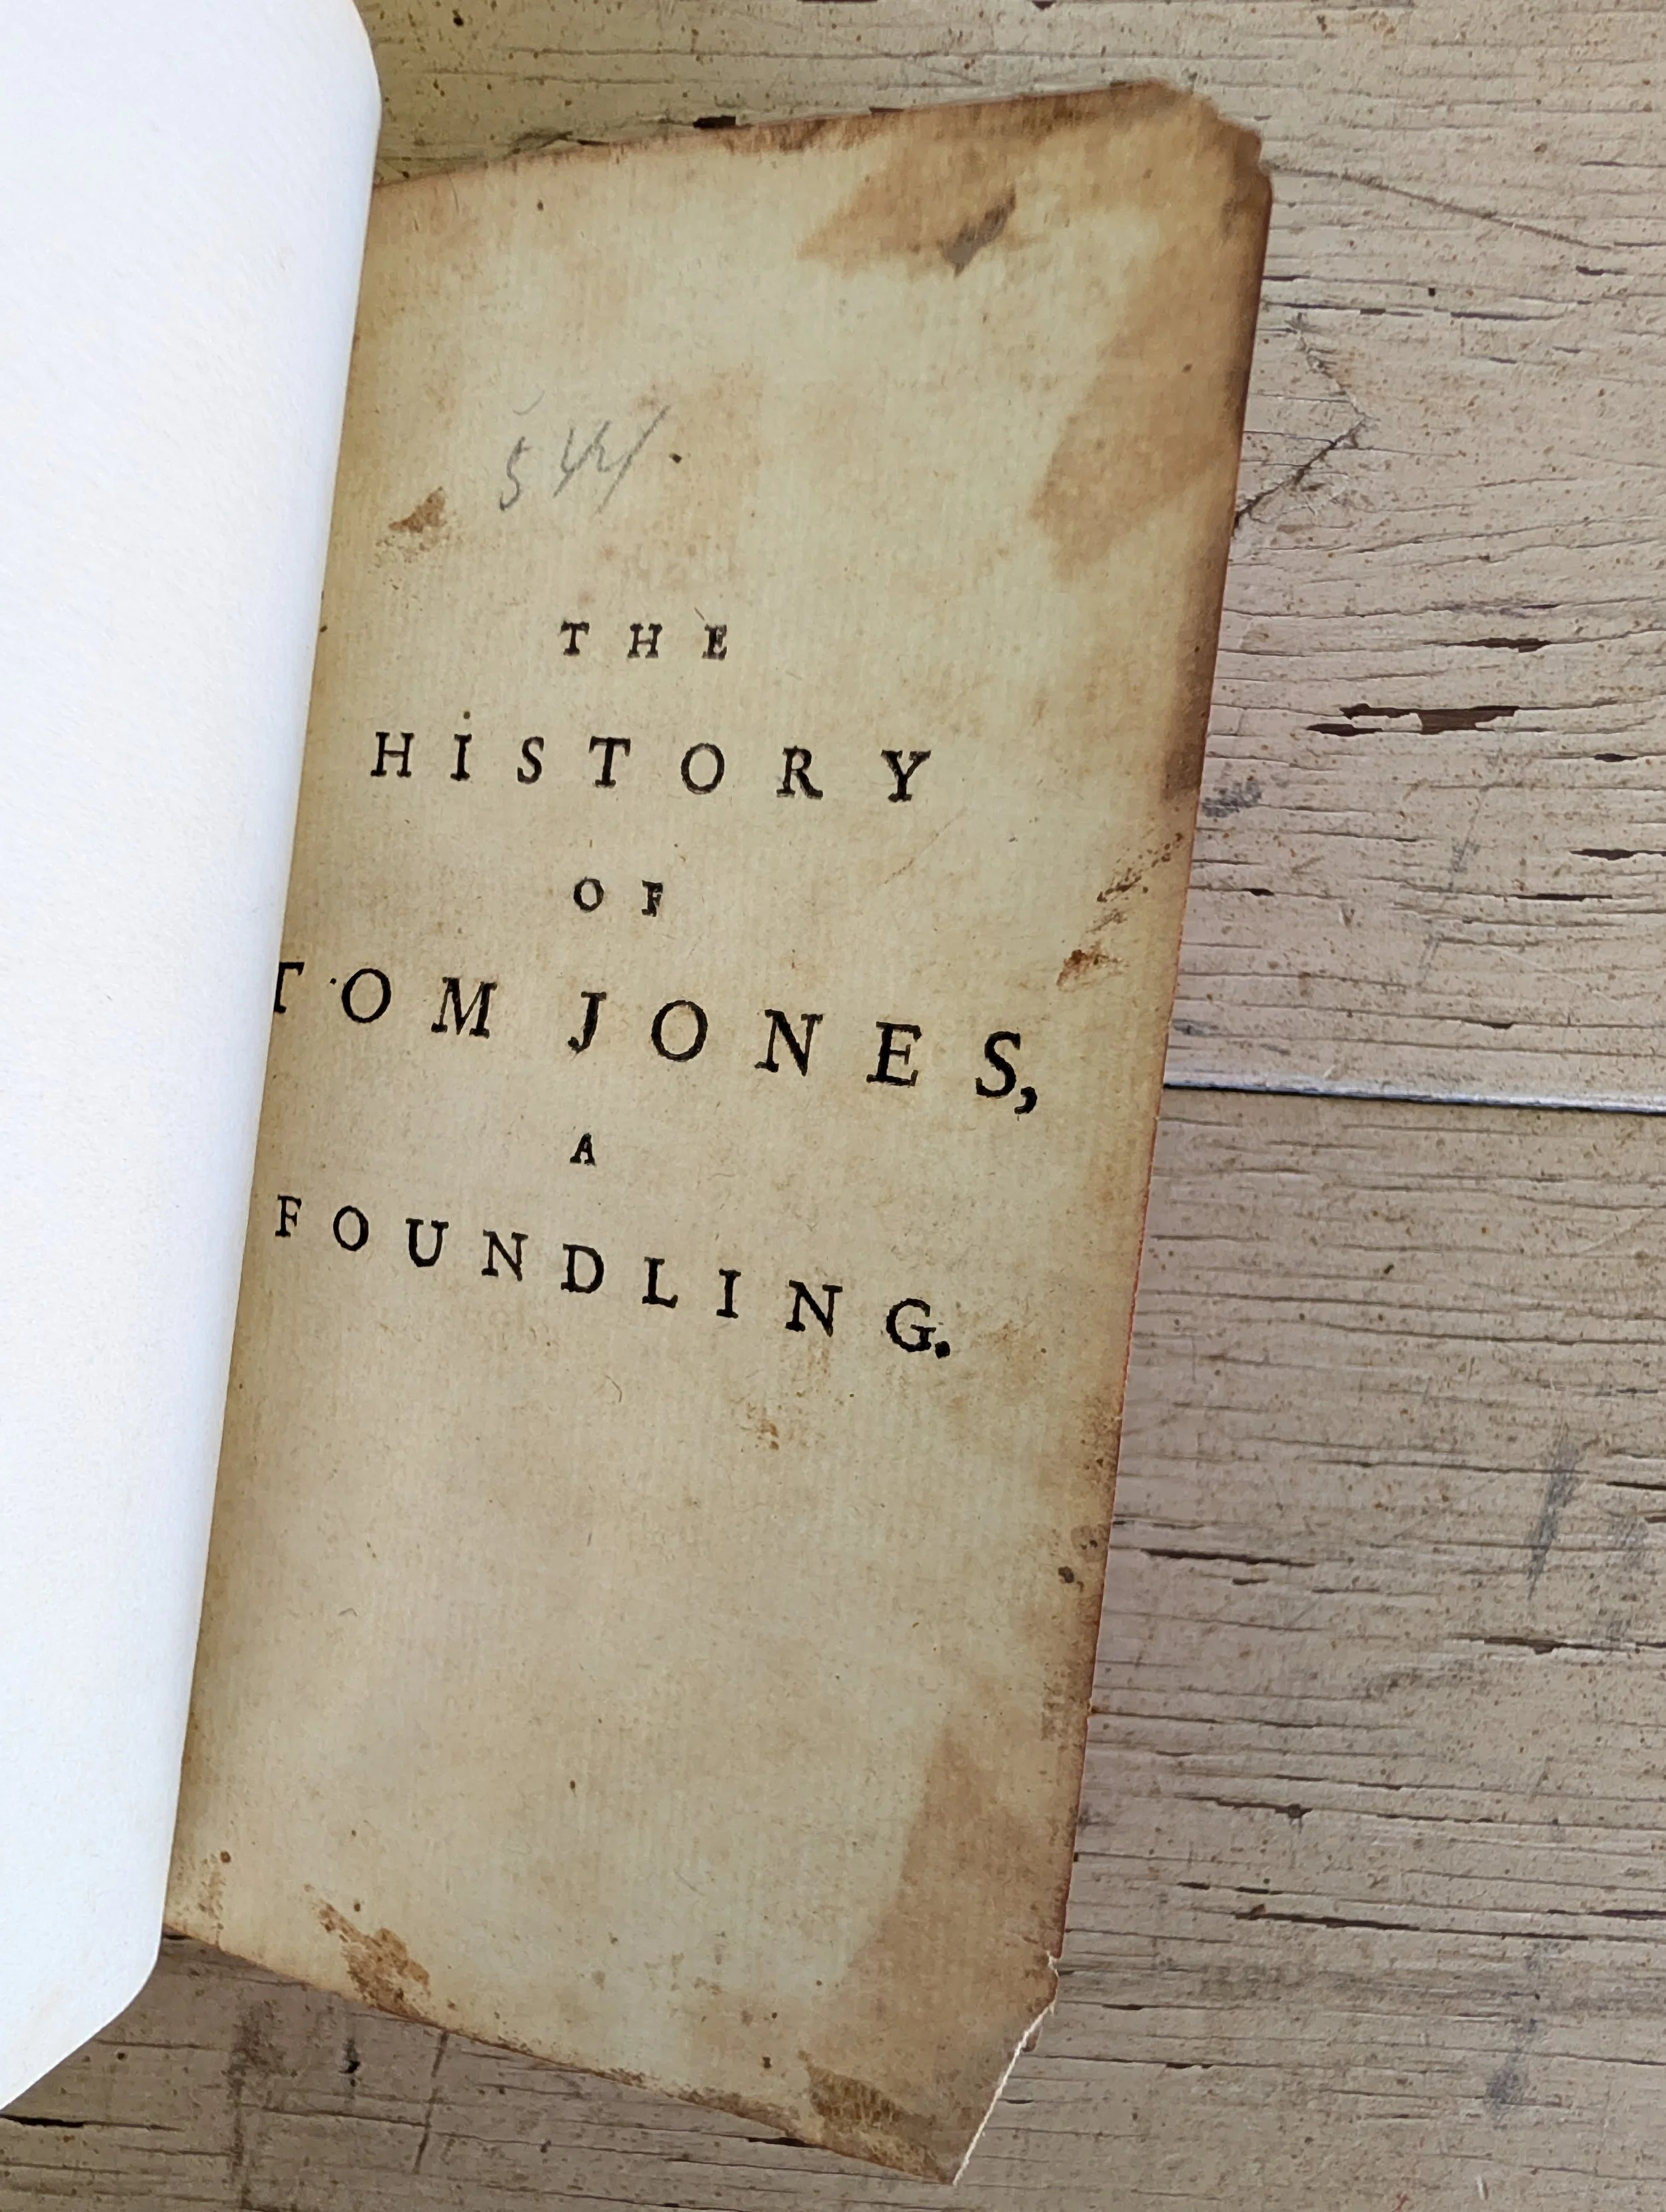 544/.
THE
HISTORY
OF
TOM JONES,
A
FOUNDLING.